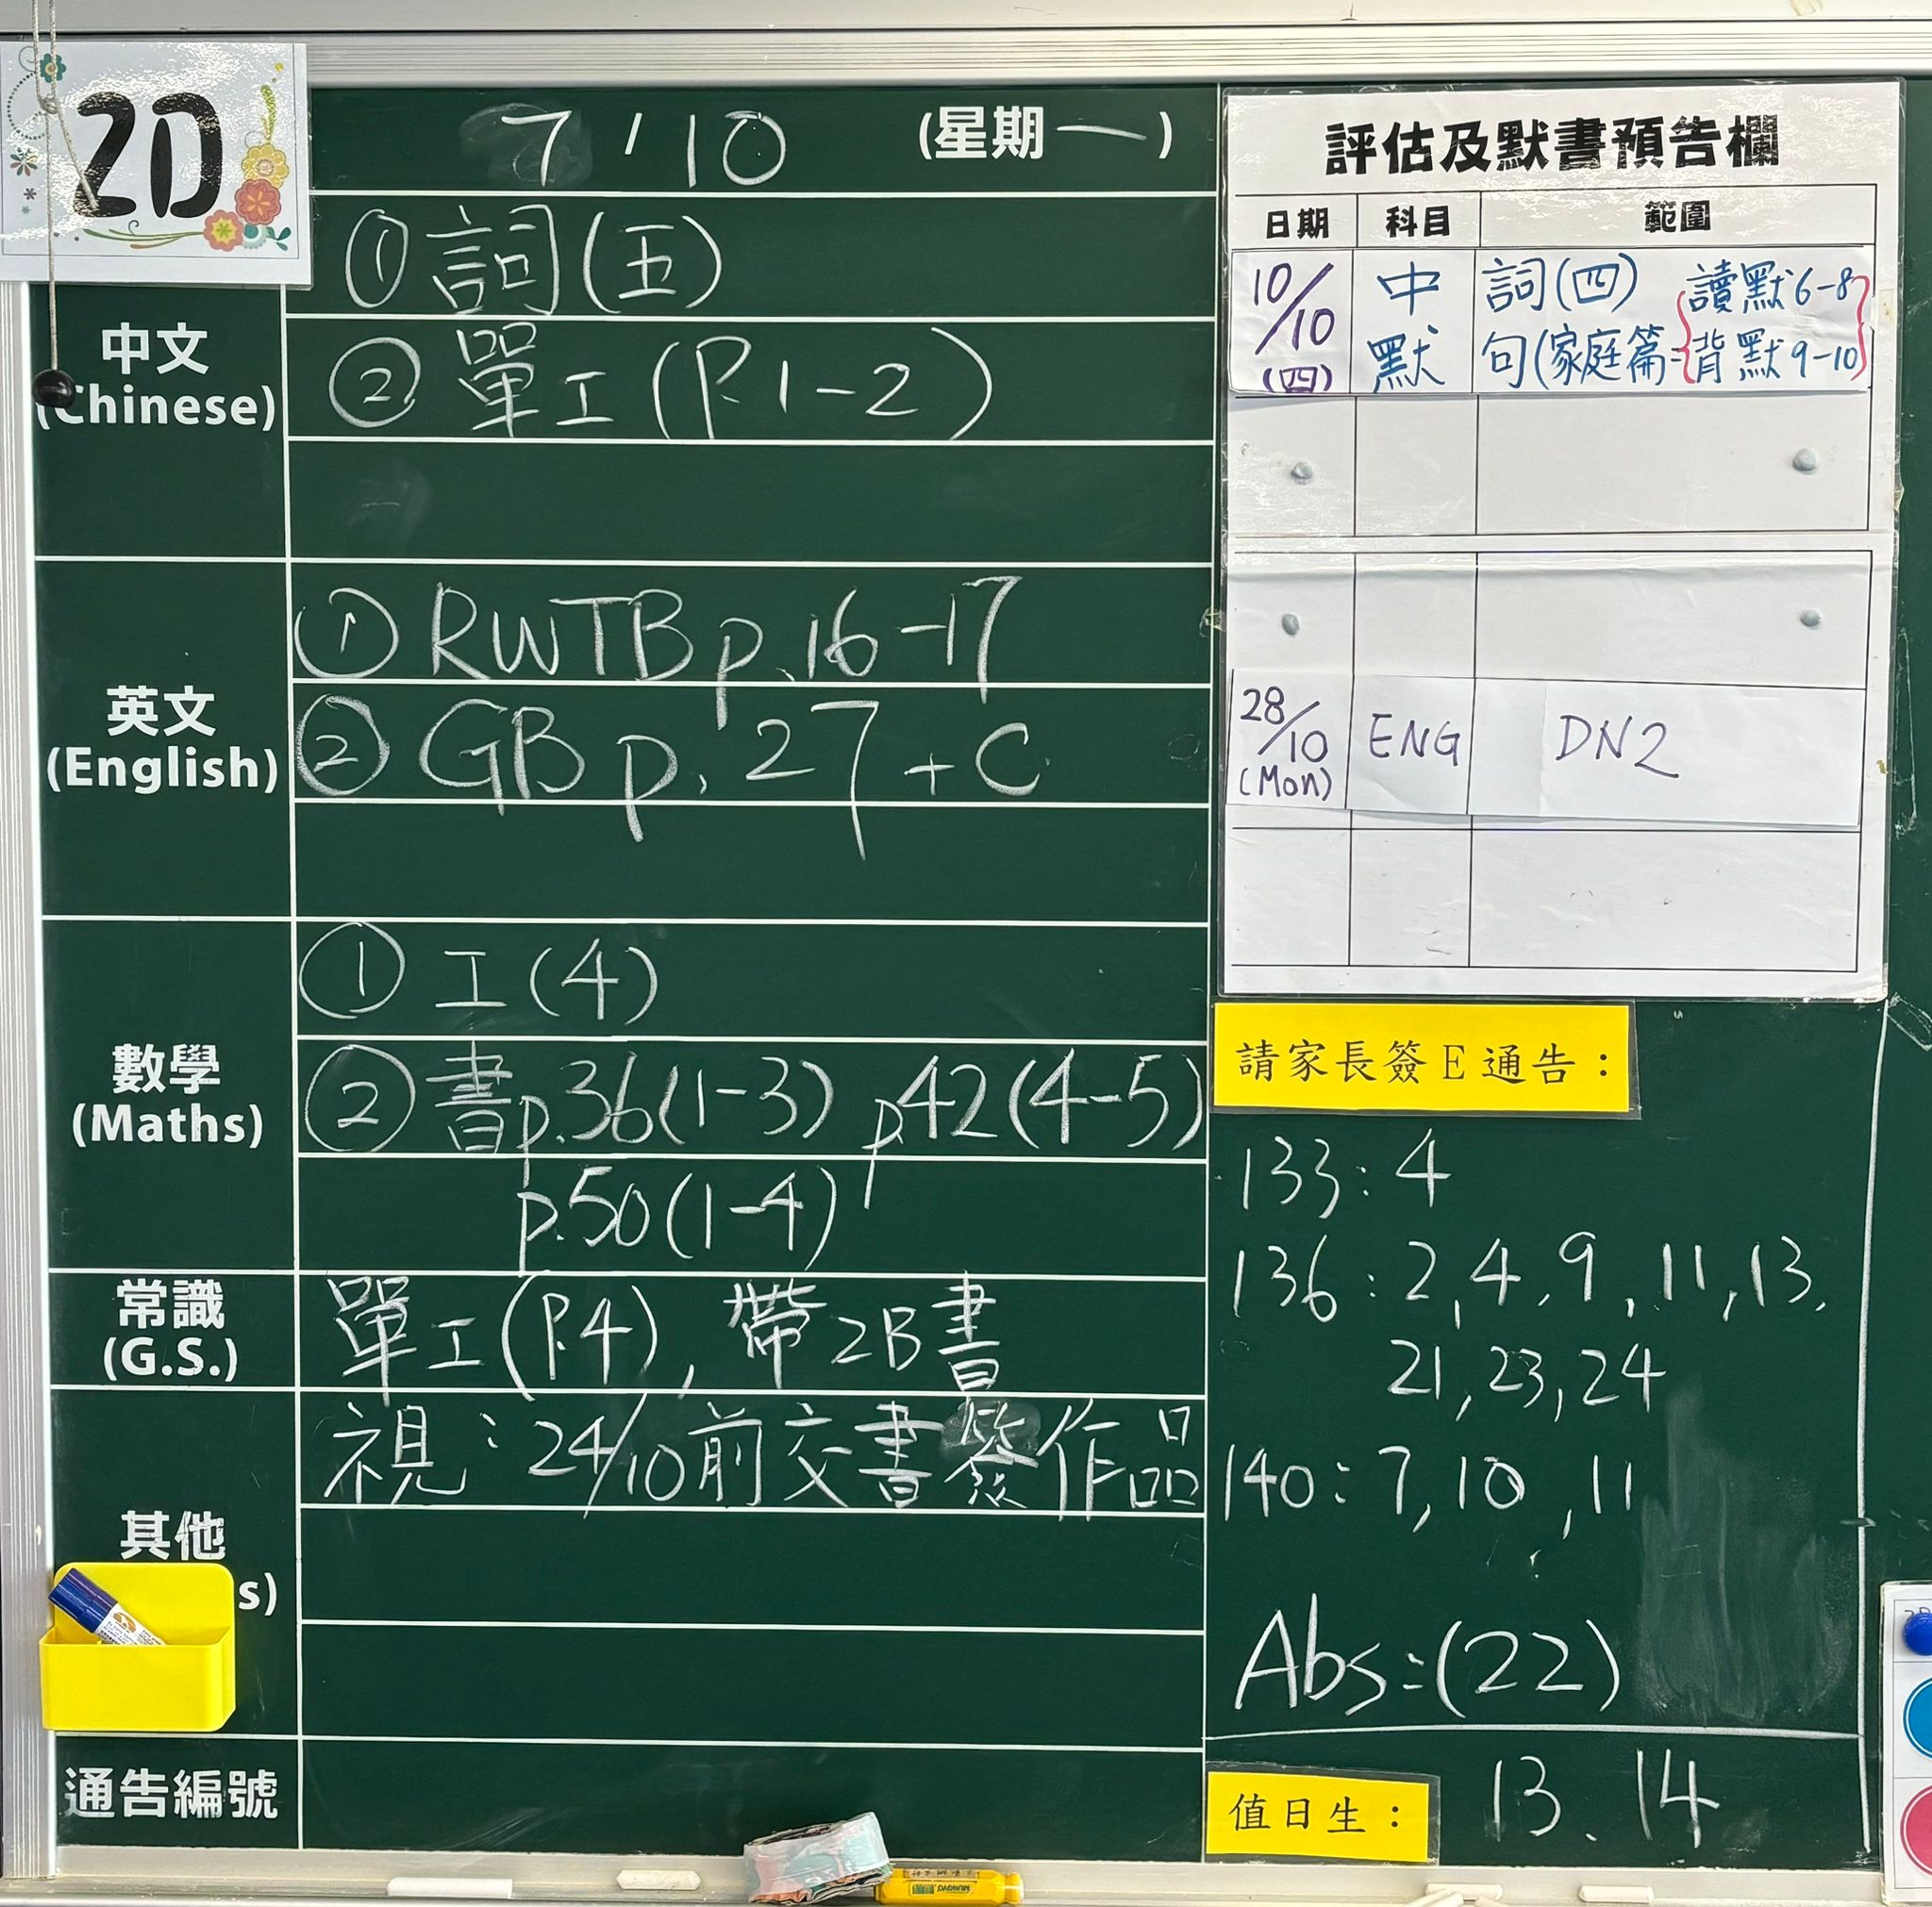 2D
7 / 10 (星期一)
中文
(Chinese)
① 詞(五)
② 單工(P.1-2)
英文
(English)
① RWTB p.16-17
② GB p.27 + C
數學
(Maths)
① 工(4)
② 書p.36(1-3) p42(4-5)
p.50(1-4)
常識
(G.S.)
單工(P.4), 帶2B書
其他
s)
視：24/10前交書簽作品
通告編號
評估及默書預告欄
日期 科目 範圍
10/10 (四) 中默 詞(四)
句(家庭篇:{讀默6-8 背默9-10}
28/10 (Mon) ENG DN2
請家長簽E通告：
133: 4
136: 2, 4, 9, 11, 13,
21, 23, 24
140: 7, 10, 11
Abs:(22)
值日生： 13、14
MUNGYO